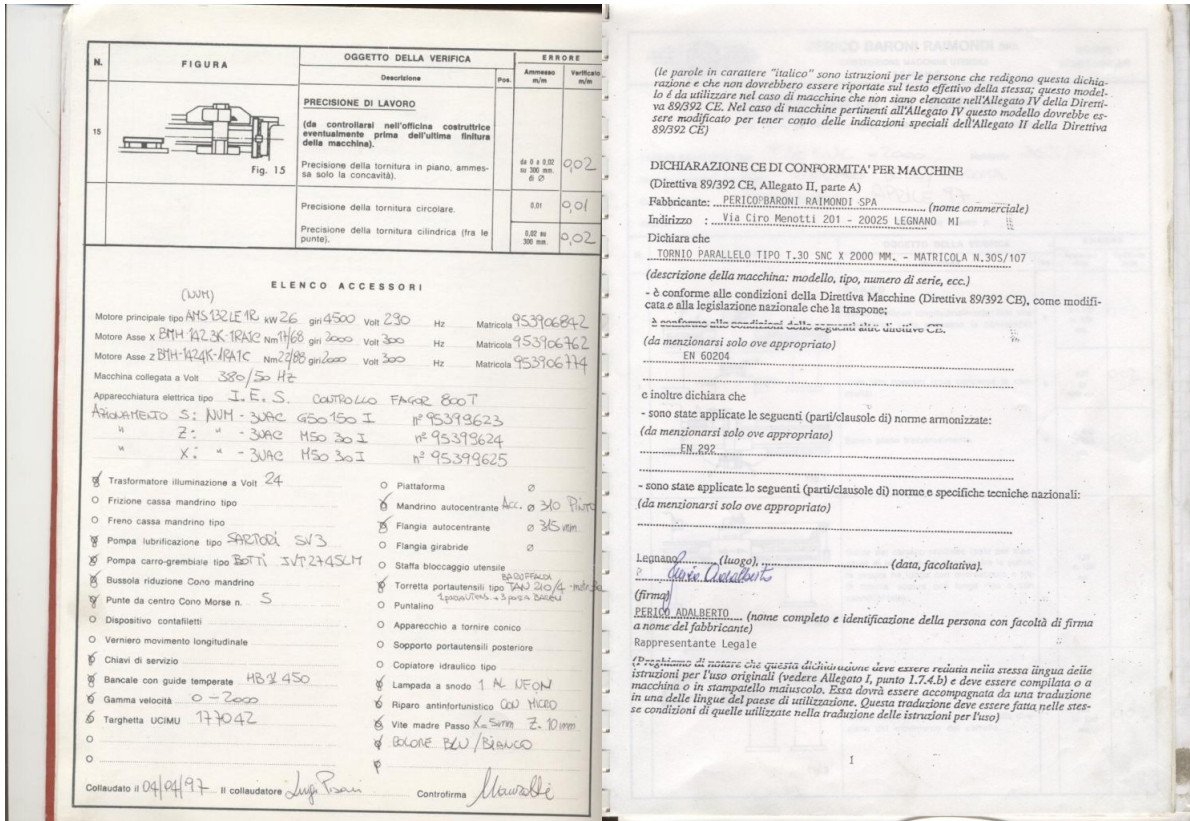 N.
FIGURA
OGGETTO DELLA VERIFICA
ERRORE
Descrizione
Pos.
Ammesso m/m
Verificato m/m
15
Fig. 15
PRECISIONE DI LAVORO
(da controllarsi nell'officina costruttrice
eventualmente prima dell'ultima finitura
della macchina).
Precisione della tornitura in piano, ammes-
sa solo la concavità).
da 0 a 0,02
su 300 mm.
di Ø
0,02
Precisione della tornitura circolare.
0,01
0,01
Precisione della tornitura cilindrica (fra le
punte).
0,02 su
300 mm.
0,02
ELENCO ACCESSORI
(NUM)
Motore principale tipo AMS 132 LE 1R kW 26 giri 4500 Volt 290 Hz Matricola 953906842
Motore Asse X BMH-1423K-1RA1C Nm 17/68 giri 2000 Volt 300 Hz Matricola 953906762
Motore Asse Z BMH-1424K-1RA1C Nm 22/88 giri 2000 Volt 300 Hz Matricola 953906774
Macchina collegata a Volt 380/50 Hz
Apparecchiatura elettrica tipo I.E.S. CONTROLLO FAGOR 800T
AZIONAMENTO S: NUM - 3UAC G50 150 I n° 95399623
" Z: " - 3UAC M50 30 I n° 95399624
" X: " - 3UAC M50 30 I n° 95399625
Trasformatore illuminazione a Volt 24
Frizione cassa mandrino tipo
Freno cassa mandrino tipo
Pompa lubrificazione tipo SARTORI SV3
Pompa carro-grembiale tipo BOTTI IVT2745LM
Bussola riduzione Cono mandrino
Punte da centro Cono Morse n. 5
Dispositivo contafiletti
Verniero movimento longitudinale
Chiavi di servizio
Bancale con guide temperate HB 450
Gamma velocità 0-2000
Targhetta UCIMU 177042
Piattaforma Ø
Mandrino autocentrante Acc. Ø 310 PINTO
Flangia autocentrante Ø 315 mm
Flangia girabride Ø
Staffa bloccaggio utensile
BARUFFALDI
Torretta portautensili tipo TAN 210/4
Puntalino
Apparecchio a tornire conico
Sopporto portautensili posteriore
Copiatore idraulico tipo
Lampada a snodo 1 AL NEON
Riparo antinfortunistico CON MICRO
Vite madre Passo X=5mm Z. 10 mm
COLORE BLU/BIANCO
Collaudato il 04/04/97 Il collaudatore Luigi Controfirma
(le parole in carattere "italico" sono istruzioni per le persone che redigono questa dichia-
razione e che non dovrebbero essere riportate sul testo effettivo della stessa; questo model-
lo é da utilizzare nel caso di macchine che non siano elencate nell'Allegato IV della Diretti-
va 89/392 CE. Nel caso di macchine pertinenti all'Allegato IV questo modello dovrebbe es-
sere modificato per tener conto delle indicazioni speciali dell'Allegato II della Direttiva
89/392 CE)
DICHIARAZIONE CE DI CONFORMITA' PER MACCHINE
(Direttiva 89/392 CE, Allegato II, parte A)
Fabbricante: PERICO*BARONI RAIMONDI SPA (nome commerciale)
Indirizzo : Via Ciro Menotti 201 - 20025 LEGNANO MI
Dichiara che
TORNIO PARALLELO TIPO T.30 SNC X 2000 MM. - MATRICOLA N.30S/107
(descrizione della macchina: modello, tipo, numero di serie, ecc.)
- è conforme alle condizioni della Direttiva Macchine (Direttiva 89/392 CE), come modifi-
cata e alla legislazione nazionale che la traspone;
è conforme alle condizioni delle seguenti altre direttive CE.
(da menzionarsi solo ove appropriato)
EN 60204
e inoltre dichiara che
- sono state applicate le seguenti (parti/clausole di) norme armonizzate:
(da menzionarsi solo ove appropriato)
EN 292
- sono state applicate le seguenti (parti/clausole di) norme e specifiche tecniche nazionali:
(da menzionarsi solo ove appropriato)
Legnano (luogo), (data, facoltativa).
Perico Adalberto
(firma)
PERICO ADALBERTO (nome completo e identificazione della persona con facoltà di firma
a nome del fabbricante)
Rappresentante Legale
(Preghiamo di notare che questa dichiarazione deve essere redatta nella stessa lingua delle
istruzioni per l'uso originali (vedere Allegato I, punto 1.7.4.b) e deve essere compilata o a
macchina o in stampatello maiuscolo. Essa dovrà essere accompagnata da una traduzione
in una delle lingue del paese di utilizzazione. Questa traduzione deve essere fatta nelle stes-
se condizioni di quelle utilizzate nella traduzione delle istruzioni per l'uso)
I